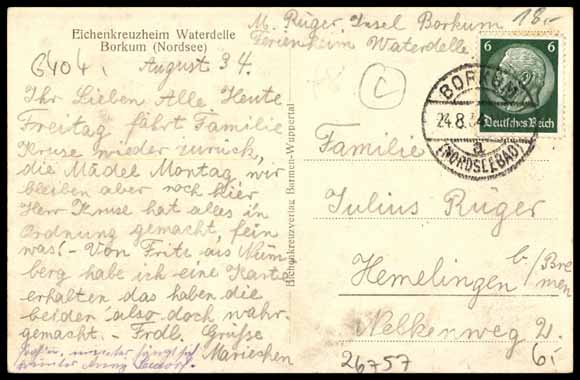 Eichenkreuzheim Waterdelle
Borkum (Nordsee)
6404.
August 34.
Ihr Lieben Alle. Heute
Freitag fährt Familie
Kruse wieder zurück,
die Mädel Montag, wir
bleiben aber noch hier
Herr Kruse hat alles in
Ordnung gemacht, fein
was! - Von Fritz aus Nürn
berg habe ich eine Karte
erhalten das haben die
beiden also doch wahr-
gemacht. - Frdl. Grüße
Mariechen
Eichenkreuzverlag Barmen-Wuppertal
M. Rüger, Insel Borkum
Ferienheim Waterdelle
18.-
C
6 6
Deutsches Reich
BORKUM
24.8.34
a
(NORDSEEBAD)
Familie
Julius Rüger
Hemelingen b/Bre
men
Nelkenweg 2.
26757
6.-